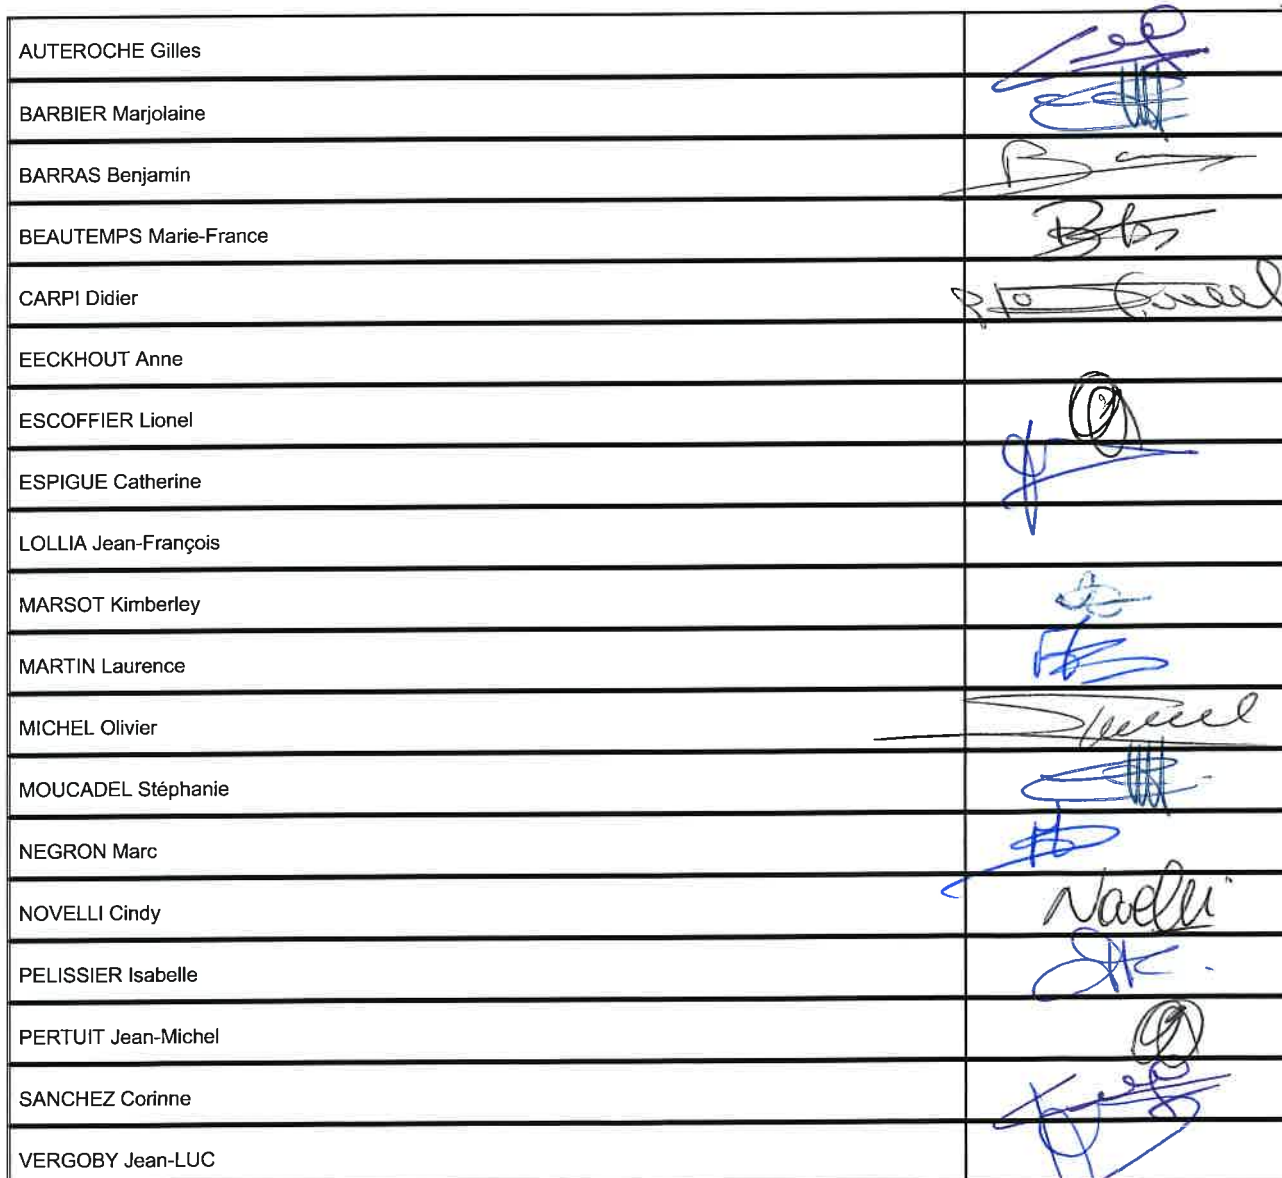 AUTEROCHE Gilles
BARBIER Marjolaine
BARRAS Benjamin
BEAUTEMPS Marie-France
CARPI Didier
EECKHOUT Anne
ESCOFFIER Lionel
ESPIGUE Catherine
LOLLIA Jean-François
MARSOT Kimberley
MARTIN Laurence
MICHEL Olivier
MOUCADEL Stéphanie
NEGRON Marc
NOVELLI Cindy
PELISSIER Isabelle
PERTUIT Jean-Michel
SANCHEZ Corinne
VERGOBY Jean-LUC